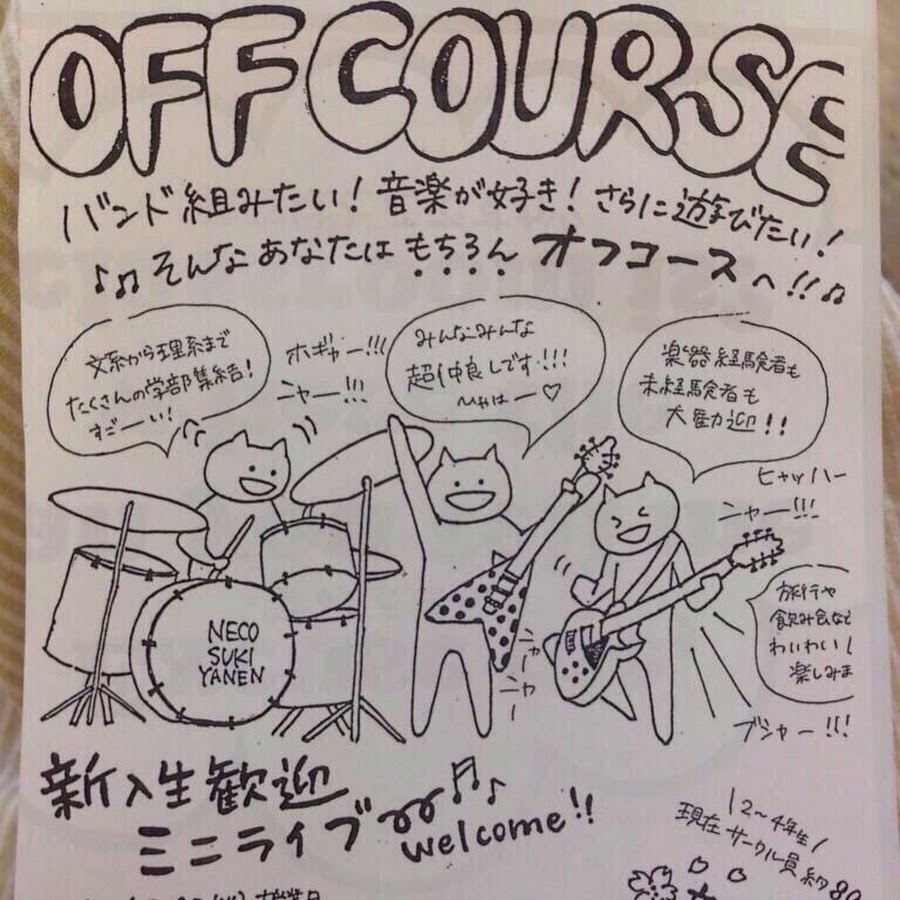 OFF COURSE
バンド組みたい！音楽が好き！さらに遊びたい！
♪♫そんなあなたはもちろんオフコースへ!!♫
文系から理系まで
たくさんの学部集結！
すごーい！
ホギャー!!!
ニャー!!!
みんなみんな
超仲良しです!!!
いやはー♡
楽器経験者も
未経験者も
大歓迎!!
ヒャッハー
ニャー!!!
旅行や
飲み会など
わいわい
楽しみま
ブシャー!!!
ニャー
NECO
SUKI
YANEN
新入生歓迎
ミニライブ
welcome!!
2〜4年生
現在サークル員約80